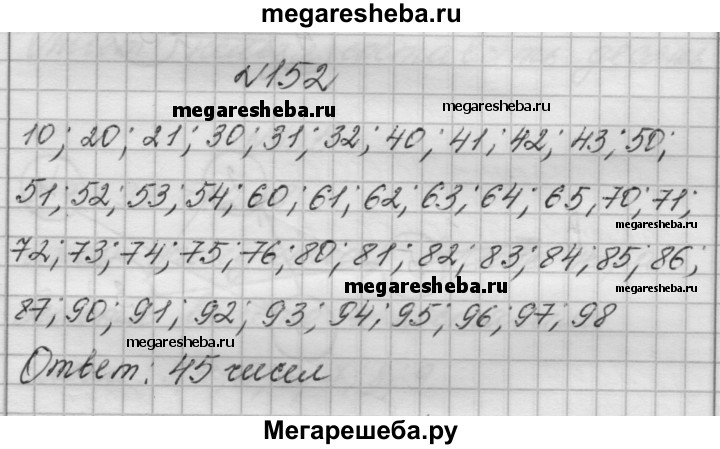 megaresheba.ru
№152
megaresheba.ru
megaresheba.ru
10; 20; 21; 30; 31; 32; 40; 41; 42; 43; 50;
51; 52; 53; 54; 60; 61; 62; 63; 64; 65, 70; 71;
megaresheba.ru
72; 73; 74; 75; 76; 80; 81; 82; 83; 84; 85; 86;
megaresheba.ru
megaresheba.ru
87; 90; 91; 92; 93; 94; 95; 96; 97; 98
megaresheba.ru
Ответ: 45 чисел
megaresheba.ru
Мегарешеба.ру